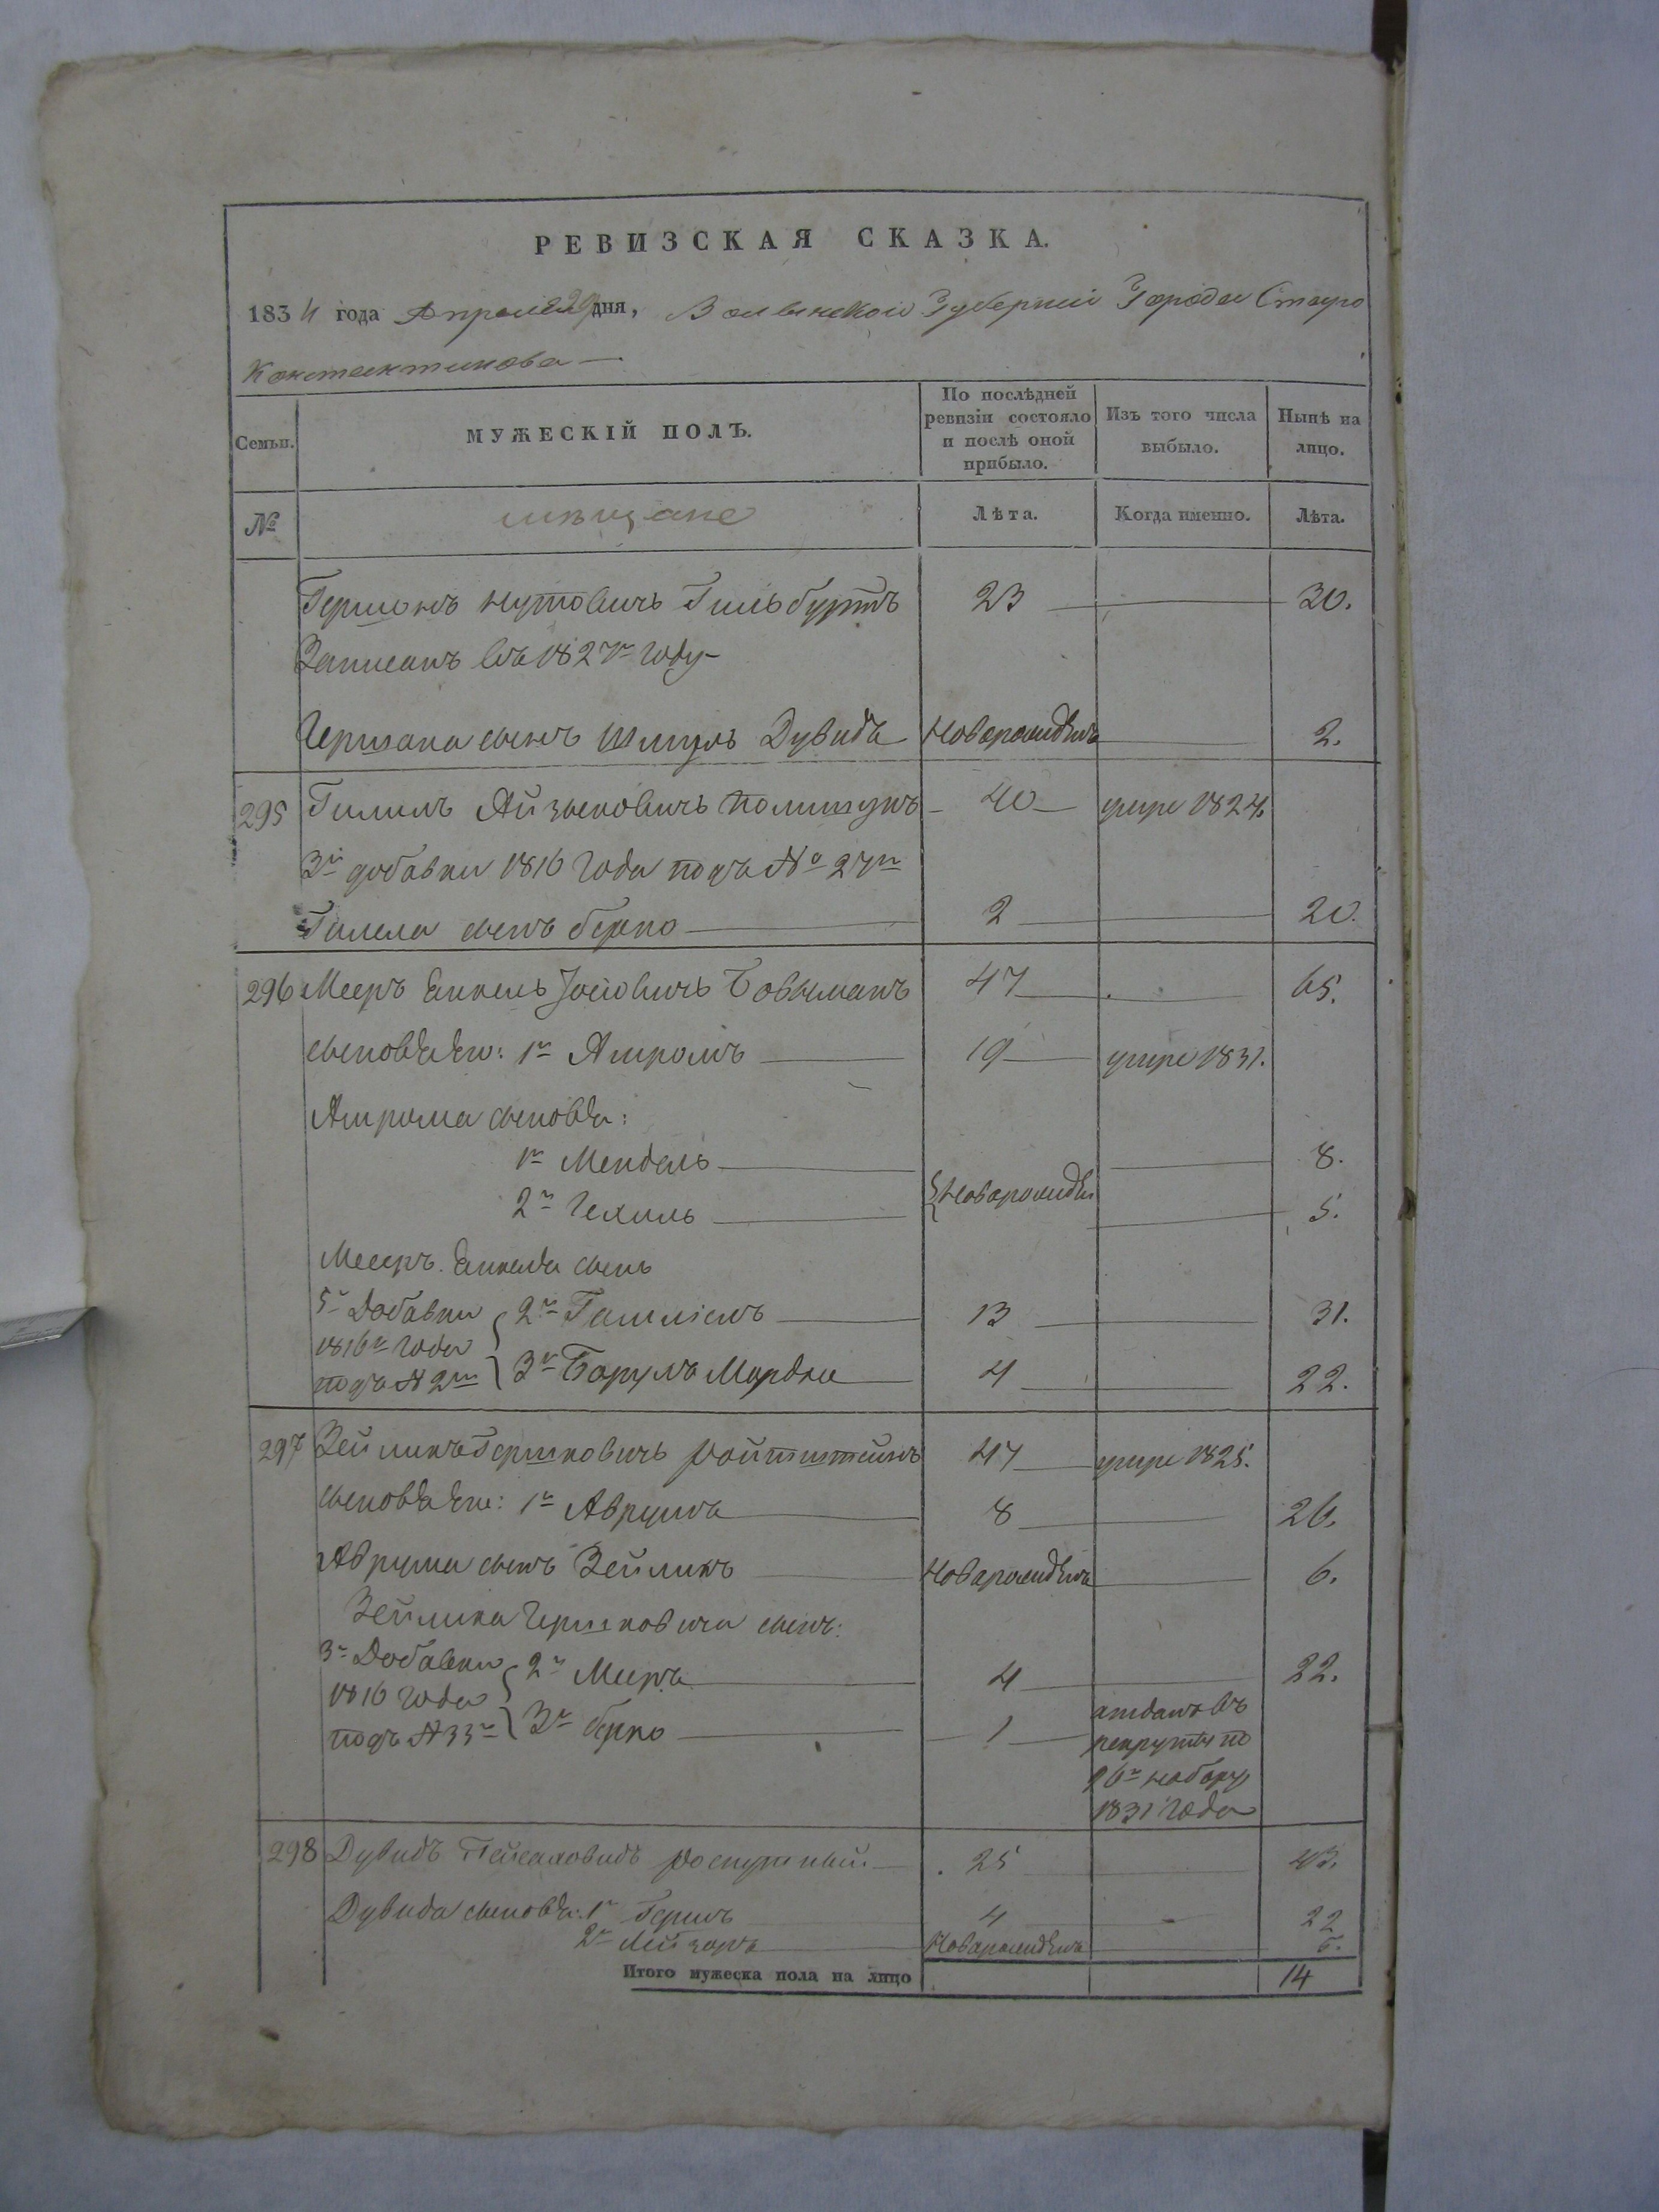 РЕВИЗСКАЯ СКАЗКА.
1834 года Апреля 29 дня, Волынской Губернии Города Старо
Константинова —
Семьи. МУЖЕСКІЙ ПОЛЪ. По послѣдней ревизіи состояло и послѣ оной прибыло. Изъ того числа выбыло. Нынѣ на лицо.
№ мѣщане Лѣта. Когда именно. Лѣта.
Гершонъ Нутовичъ Гильбуртъ 23 30.
Записанъ въ 1827м году
Гершона сынъ Шмуль Дувидъ Новорожденъ 2.
295 Гилилъ Айзыковичъ Полищукъ 40 умре 1824.
3й добавки 1816 года подъ № 27м
Гилела сынъ Берко 2 20.
296 Мееръ Янкель Іосіовичъ Бовшманъ 47 65.
сыновья Его: 1й Ашромъ 19 умре 1831.
Ашрома сыновья:
1й Мендель 8.
Новорожден
2й Гехиль 5.
Мееръ Янкеля сынъ
5й Добавки 2й Гамшіелъ 13 31.
1816го года
подъ № 2м 3й Борухъ Мордко 4 22.
297 Зейликъ Гершковичъ Ройтштейнъ 47 умре 1825.
сыновья Его: 1й Аврумъ 8 26.
Аврума сынъ Зейликъ Новорожденъ 6.
Зейлика Гершковича сынъ:
3й Добавки 2й Меиръ 4 22.
1816 года
подъ № 33м 3й Берко 1 отданъ въ
рекруты по
96му набору
1831 года
298 Дувидъ Пейсаховичъ Роспутный 25 43.
Дувида сыновья: 1й Гершъ 4 22
2й Лейзоръ Новорожденъ 6.
Итого мужеска пола на лицо 14